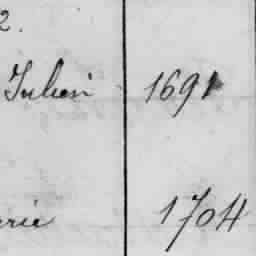 2.
Julien 1691
rie 1704